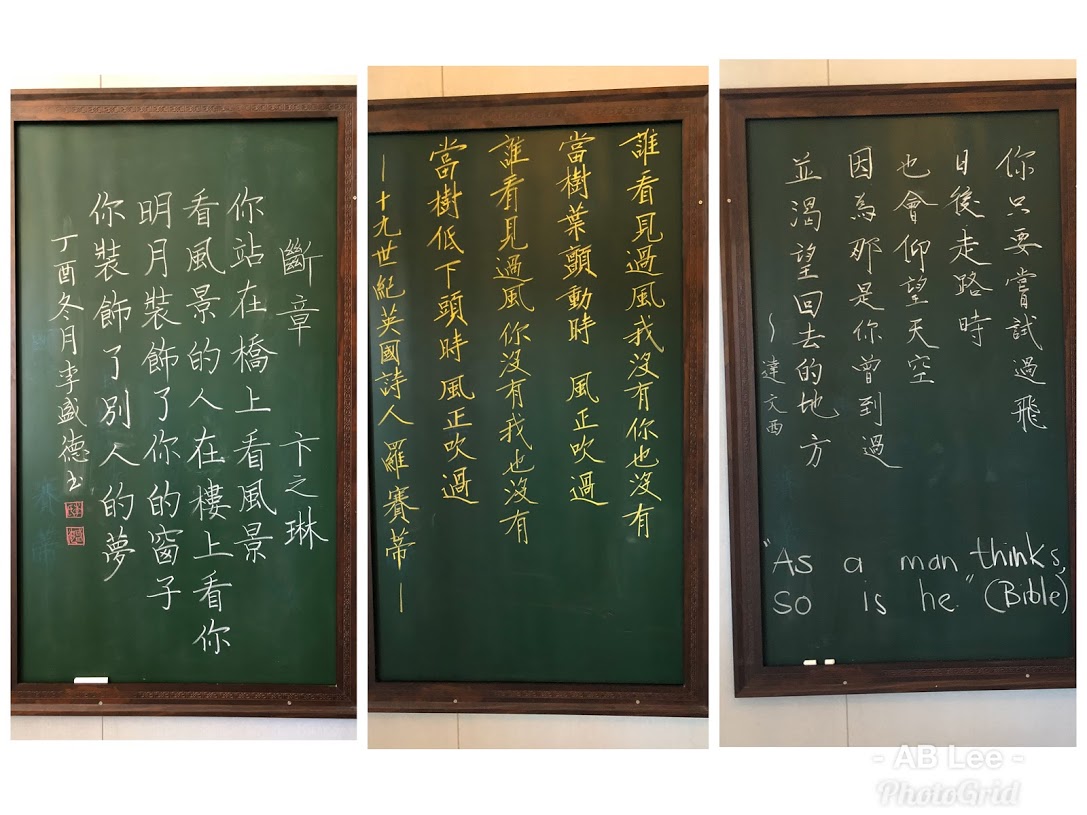 斷章 卞之琳
你站在橋上看風景
看風景的人在樓上看你
明月裝飾了你的窗子
你裝飾了別人的夢
丁酉冬月李盛德书
賽蒂
誰看見過風我沒有你也沒有
當樹葉顫動時 風正吹過
誰看見過風你沒有我也沒有
當樹低下頭時 風正吹過
—十九世紀英國詩人 羅賽蒂—
你只要嘗試過飛
日後走路時
也會仰望天空
因為那是你曾到過
並渴望回去的地方
~達文西
"As a man thinks,
so is he." (Bible)
- AB Lee -
PhotoGrid